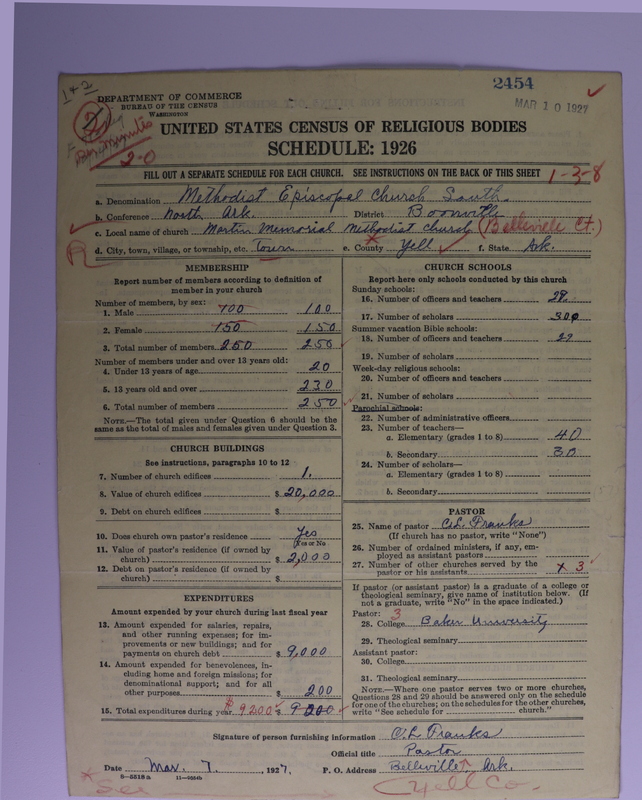 1 & 2
2454
DEPARTMENT OF COMMERCE
BUREAU OF THE CENSUS
WASHINGTON
MAR 10 1927
2
20
UNITED STATES CENSUS OF RELIGIOUS BODIES
SCHEDULE: 1926
FILL OUT A SEPARATE SCHEDULE FOR EACH CHURCH. SEE INSTRUCTIONS ON THE BACK OF THIS SHEET 1-3-8
a. Denomination Methodist Episcopal Church South
b. Conference North Ark. District Boonville
c. Local name of church Martin Memorial Methodist church (Belleville Ct.)
R
d. City, town, village, or township, etc. Town e. County Yell f. State Ark.
MEMBERSHIP
Report number of members according to definition of
member in your church
Number of members, by sex:
1. Male 100 100
2. Female 150 150
3. Total number of members 250 250
Number of members under and over 13 years old:
4. Under 13 years of age 20
5. 13 years old and over 230
6. Total number of members 250
NOTE.—The total given under Question 6 should be the
same as the total of males and females given under Question 3.
CHURCH BUILDINGS
See instructions, paragraphs 10 to 12
7. Number of church edifices 1.
8. Value of church edifices $ 20,000
9. Debt on church edifices $
10. Does church own pastor's residence Yes
(Yes or No)
11. Value of pastor's residence (if owned by
church) $ 2,000
12. Debt on pastor's residence (if owned by
church) $
EXPENDITURES
Amount expended by your church during last fiscal year
13. Amount expended for salaries, repairs,
and other running expenses; for im-
provements or new buildings; and for
payments on church debt $ 9,000
14. Amount expended for benevolences, in-
cluding home and foreign missions; for
denominational support; and for all
other purposes $ 200
15. Total expenditures during year $ 9200 $ 9200
CHURCH SCHOOLS
Report here only schools conducted by this church
Sunday schools:
16. Number of officers and teachers 29
17. Number of scholars 300
Summer vacation Bible schools:
18. Number of officers and teachers 29
19. Number of scholars
Week-day religious schools:
20. Number of officers and teachers
21. Number of scholars
Parochial schools:
22. Number of administrative officers
23. Number of teachers—
a. Elementary (grades 1 to 8) 40
b. Secondary 30
24. Number of scholars—
a. Elementary (grades 1 to 8)
b. Secondary
PASTOR
25. Name of pastor C.L. Franks
(If church has no pastor, write "None")
26. Number of ordained ministers, if any, em-
ployed as assistant pastors
27. Number of other churches served by the
pastor or his assistants x 3
If pastor (or assistant pastor) is a graduate of a college or
theological seminary, give name of institution below. (If
not a graduate, write "No" in the space indicated.)
Pastor: 3
28. College Baker University
29. Theological seminary
Assistant pastor:
30. College
31. Theological seminary
NOTE.—Where one pastor serves two or more churches,
Questions 28 and 29 should be answered only on the schedule
for one of the churches; on the schedules for the other churches,
write "See schedule for church."
Signature of person furnishing information C.L. Franks
Official title Pastor
Date Mar. 7, 1927. P. O. Address Belleville, Ark.
11—9584b
* See Yell Co.